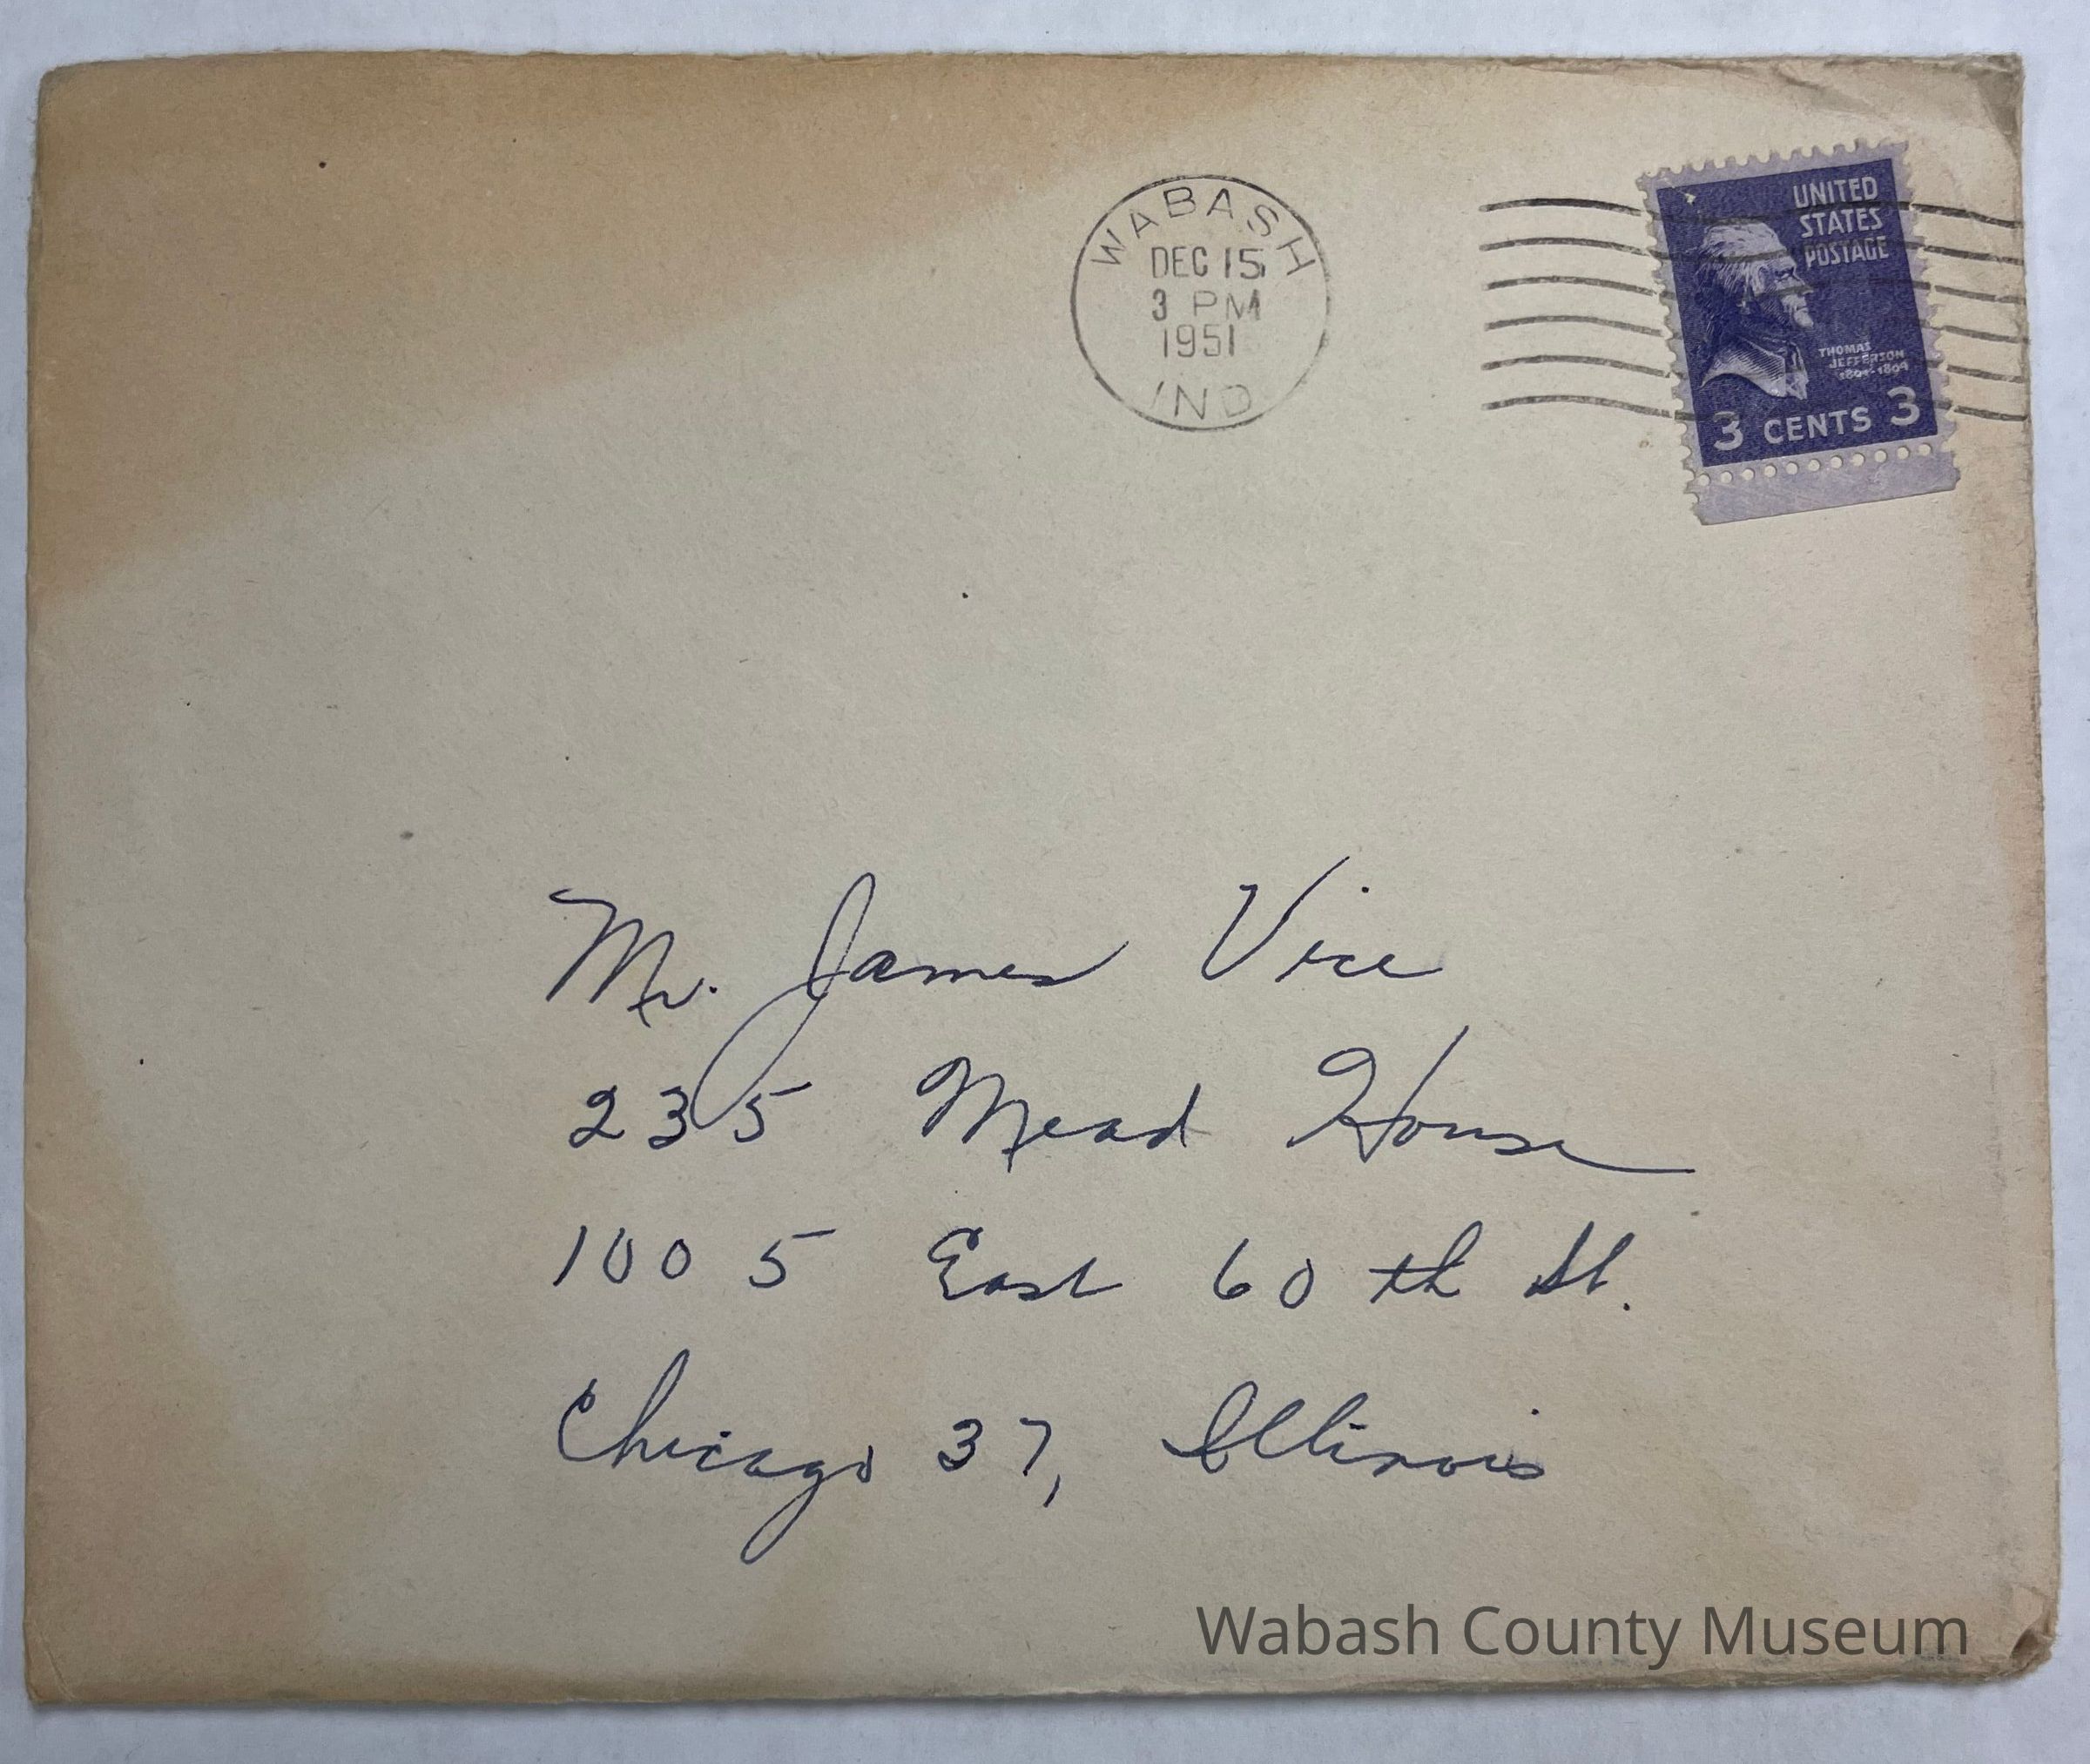 WABASH
DEC 15
3 PM
1951
IND
UNITED
STATES
POSTAGE
THOMAS
JEFFERSON
1801-1809
3 CENTS 3
Mr. James Vice
235 Mead House
1005 East 60th St.
Chicago 37, Illinois
Wabash County Museum